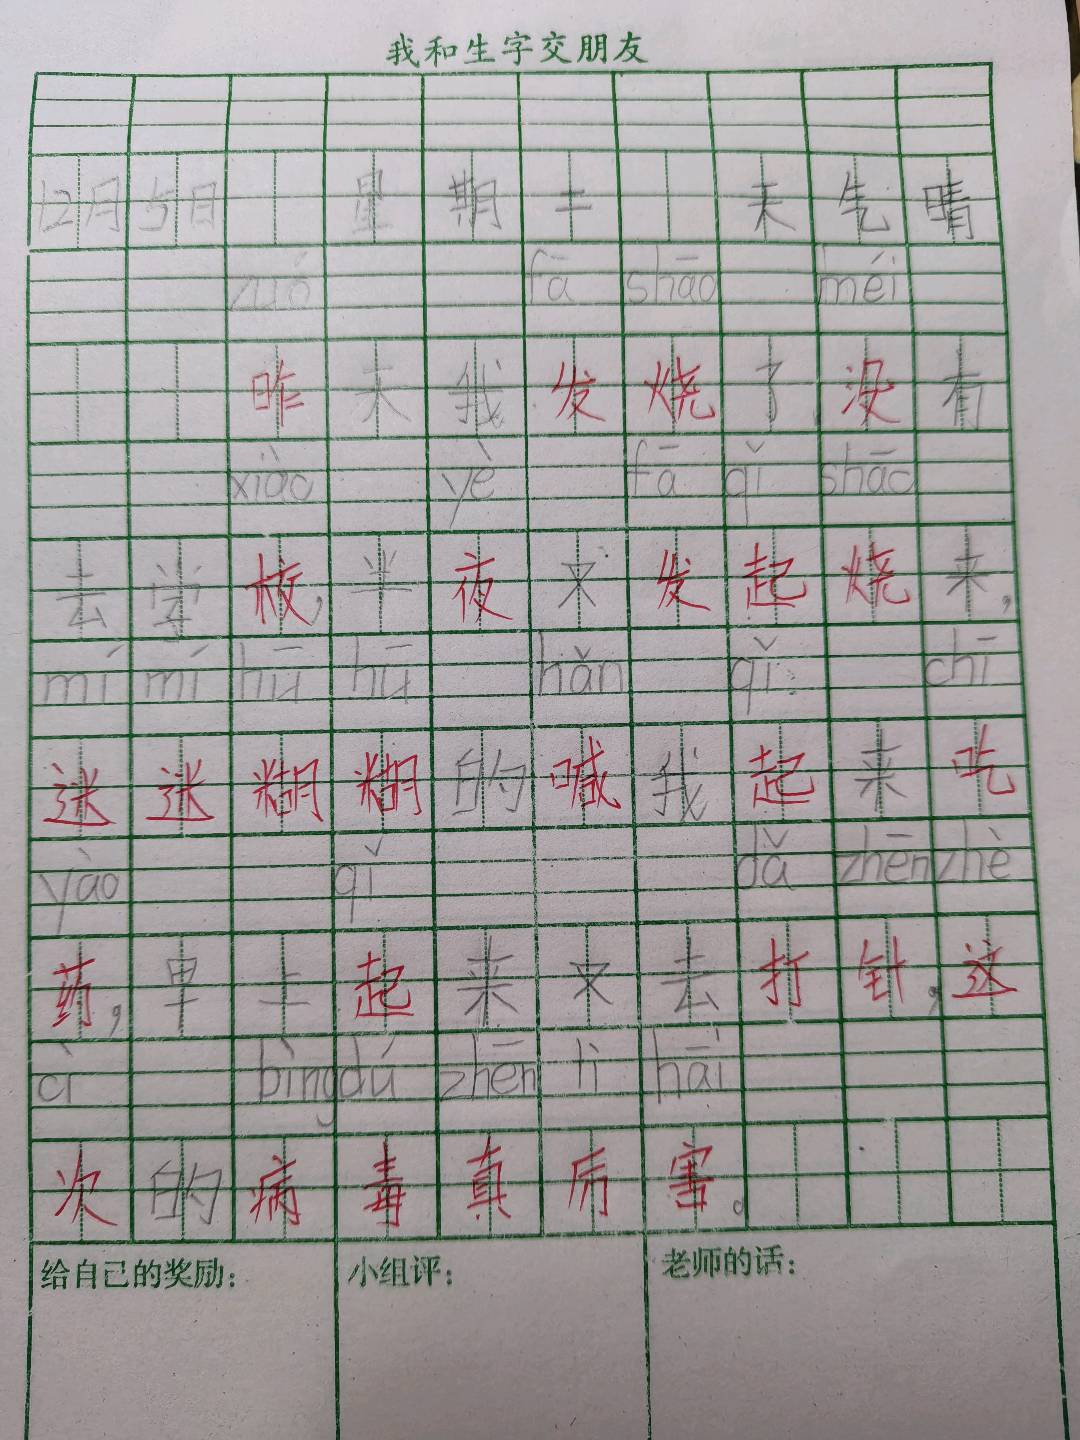 我和生字交朋友
12月5日 星期二 天气晴
zuó fā shāo méi
昨天我发烧了没有
xiào yè fā qǐ shāo
去学校,半夜又发起烧来,
mí mí hū hū hǎn qǐ chī
迷迷糊糊的喊我起来吃
yào qǐ dǎ zhēn zhè
药,早上起来又去打针,这
cì bìng dú zhēn lì hāi
次的病毒真厉害。
给自己的奖励: 小组评: 老师的话: